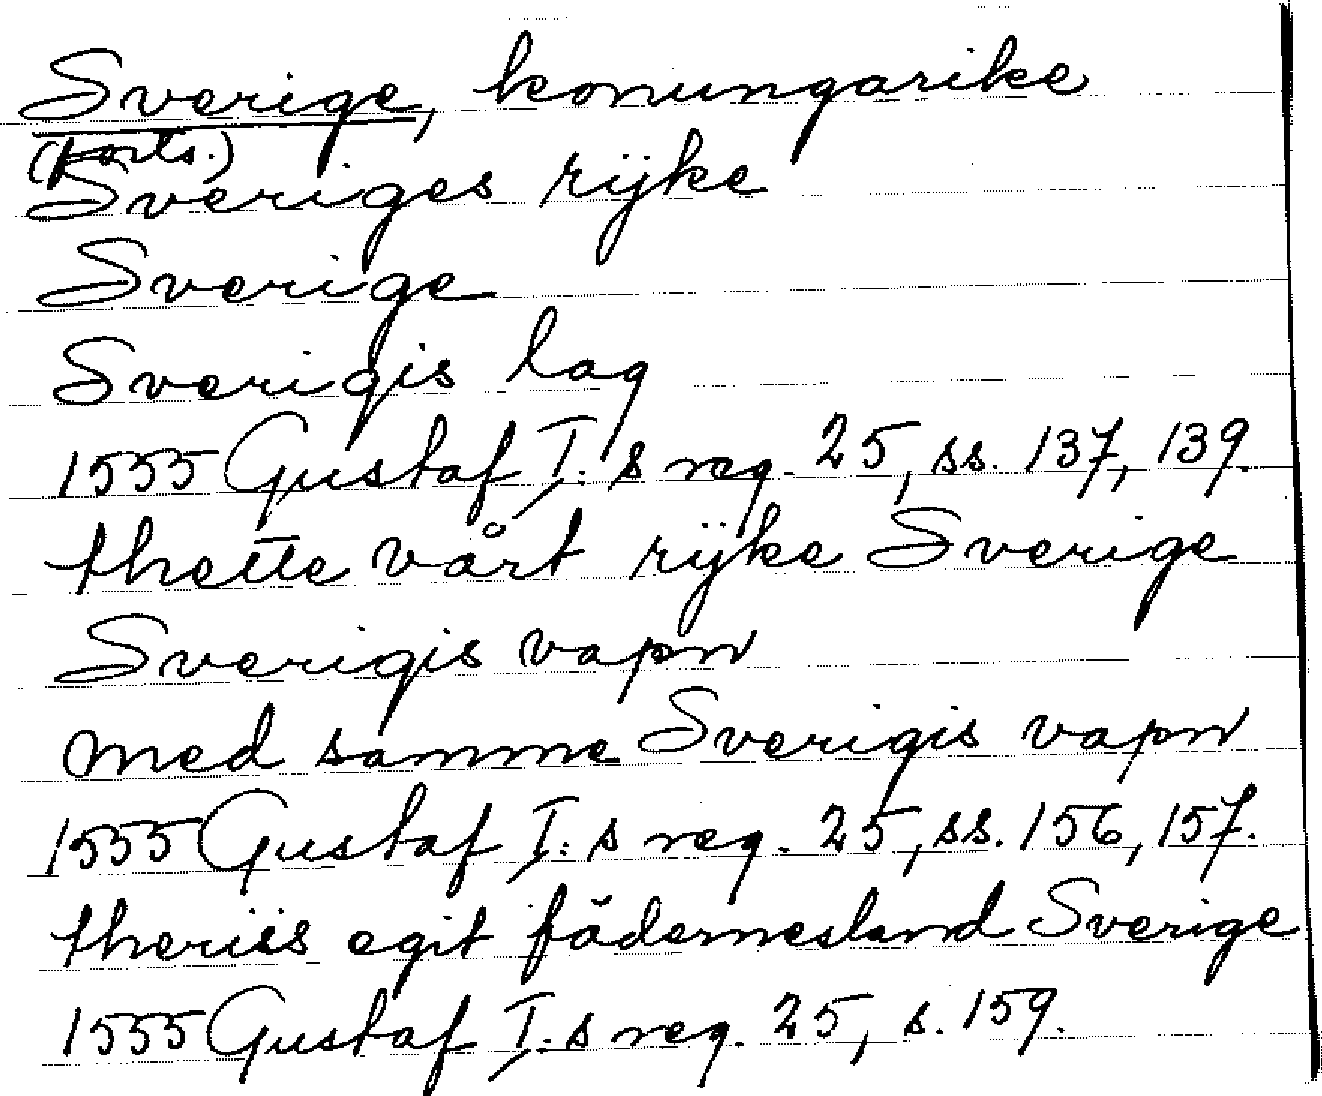 Sverige, konungarike
(forts.)
Sveriges rijke
Sverige
Sverigis lag
1555 Gustaf I:s reg. 25, ss. 137, 139.
thette vårt rijke Sverige
Sverigis vapn
med samme Sverigis vapn
1555 Gustaf I:s reg. 25, ss. 156, 157.
theriis egit fädernesland Sverige
1555 Gustaf I:s reg. 25, s. 159.